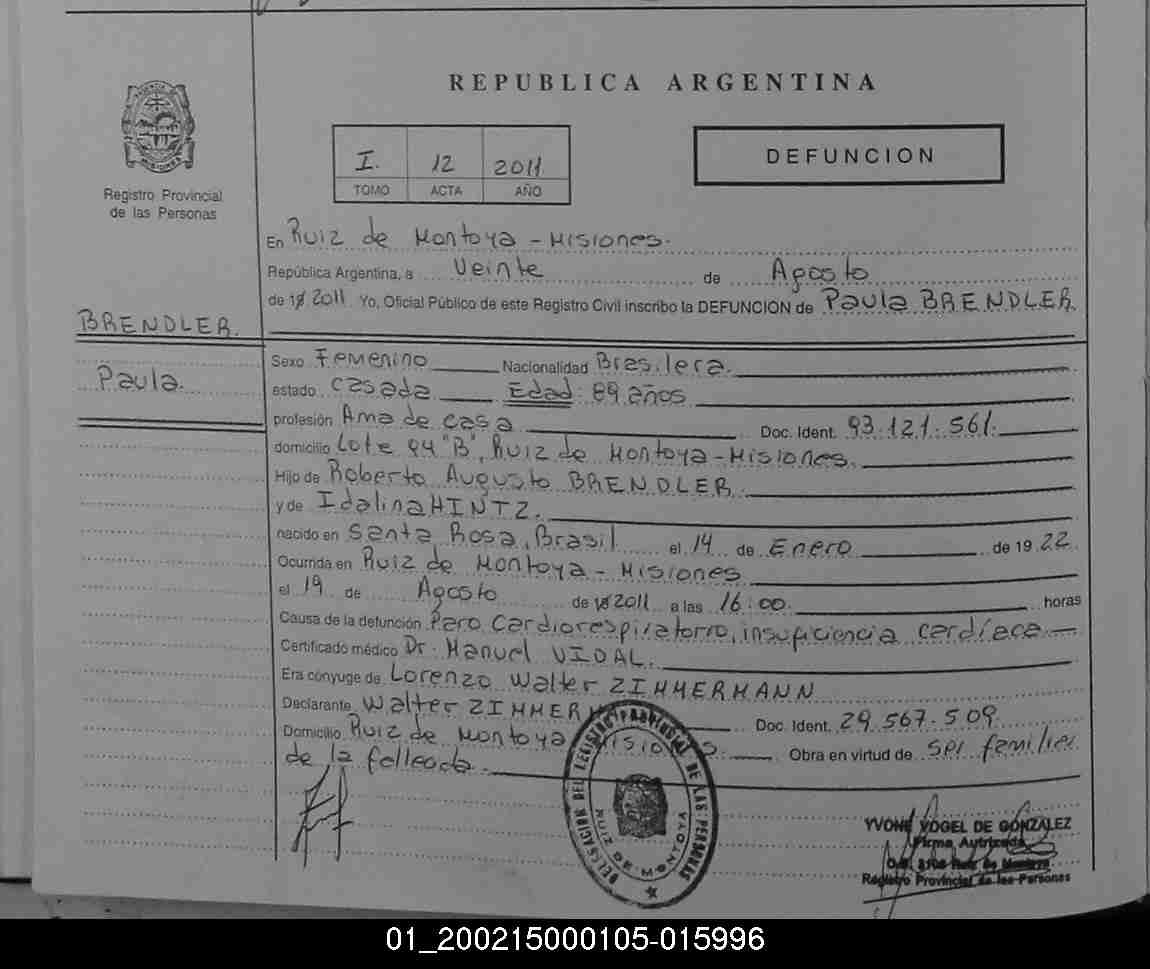 REPUBLICA ARGENTINA
I. 12 2011
TOMO ACTA AÑO
DEFUNCION
Registro Provincial
de las Personas
En Ruiz de Montoya - Misiones.
República Argentina, a Veinte de Agosto
de 19 2011 Yo, Oficial Público de este Registro Civil inscribo la DEFUNCION de Paula BRENDLER.
BRENDLER.
Paula.
Sexo Femenino Nacionalidad Brasilera.
estado casada Edad: 89 años
profesión Ama de casa Doc. Ident. 93.121.561.
domicilio Lote 94 "B", Ruiz de Montoya - Misiones.
Hijo de Roberto Augusto BRENDLER.
y de Idalina HINTZ.
nacido en Santa Rosa, Brasil el 14 de Enero de 1922
Ocurrida en Ruiz de Montoya - Misiones
el 19 de Agosto de 19 2011 a las 16:00 horas
Causa de la defunción Paro cardiorespiratorio, insuficiencia cardíaca
Certificado médico Dr. Manuel VIDAL.
Era cónyuge de Lorenzo Walter ZIMMERMANN
Declarante Walter ZIMMER Doc. Ident. 29.567.509
Domicilio Ruiz de Montoya Misiones Obra en virtud de ser familiar
de la fallecida.
DELEGACION DEL REGISTRO PROVINCIAL DE LAS PERSONAS
RUIZ DE MONTOYA
YVONE VOGEL DE GONZALEZ
Firma Autorizada
Registro Provincial de las Personas
01_200215000105-015996